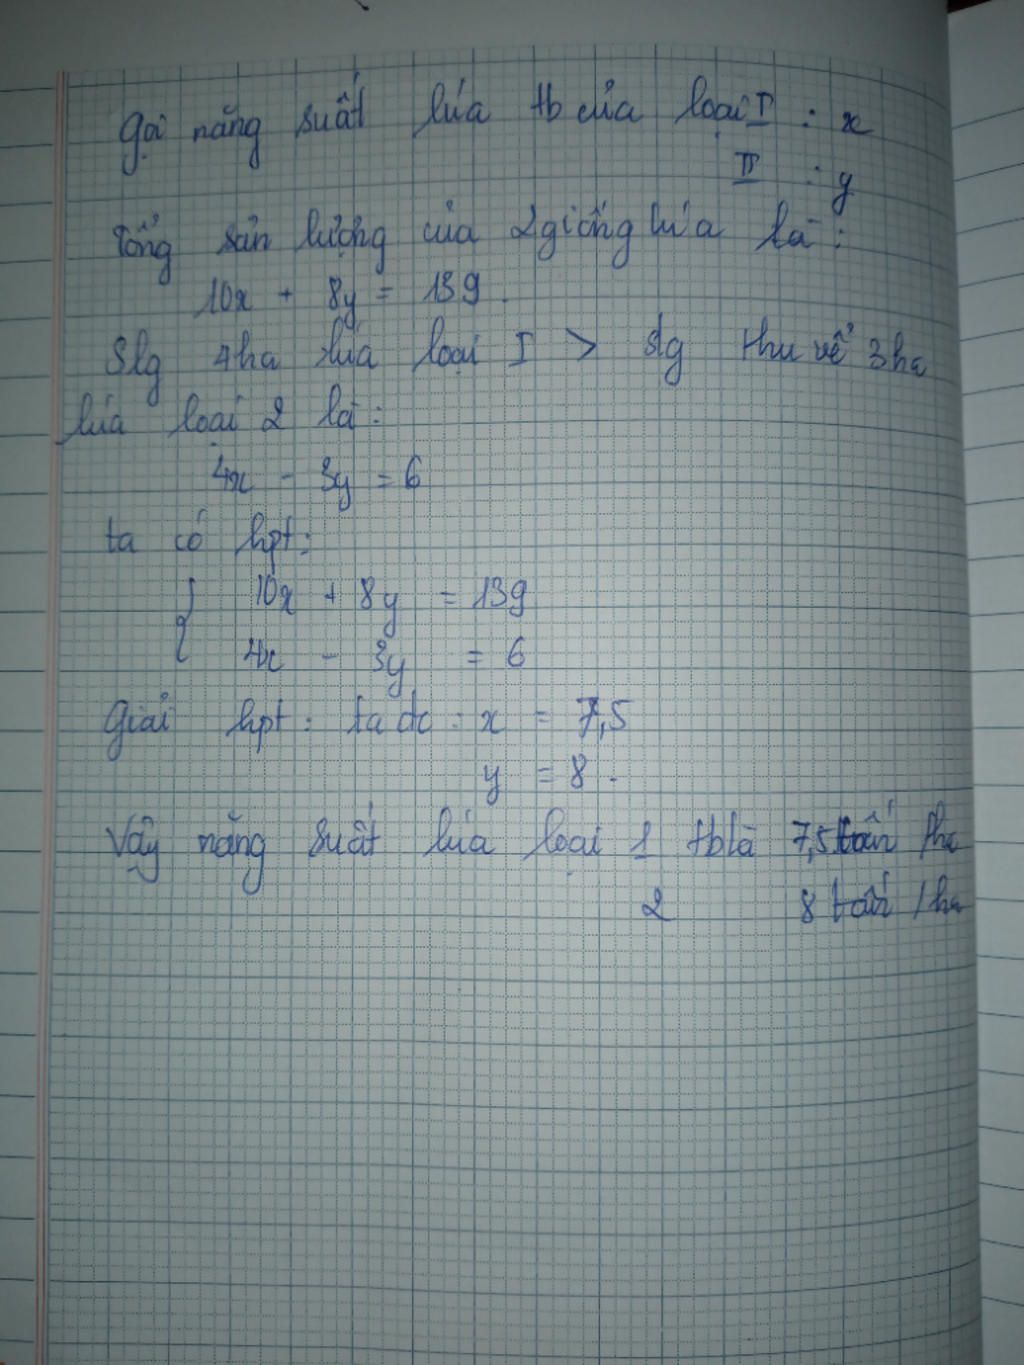 Gọi năng suất lúa tb của loại I : x
II : y
Tổng sản lượng của 2 giống lúa là :
10x + 8y = 139.
Slg 4ha lúa loại I > slg thu về 3ha
lúa loại 2 là :
4x - 3y = 6
ta có hpt :
{ 10x + 8y = 139
4x - 3y = 6
Giải hpt : ta dc : x = 7,5
y = 8.
Vậy năng suất lúa loại 1 tb là 7,5 tấn /ha
2 8 tấn /ha